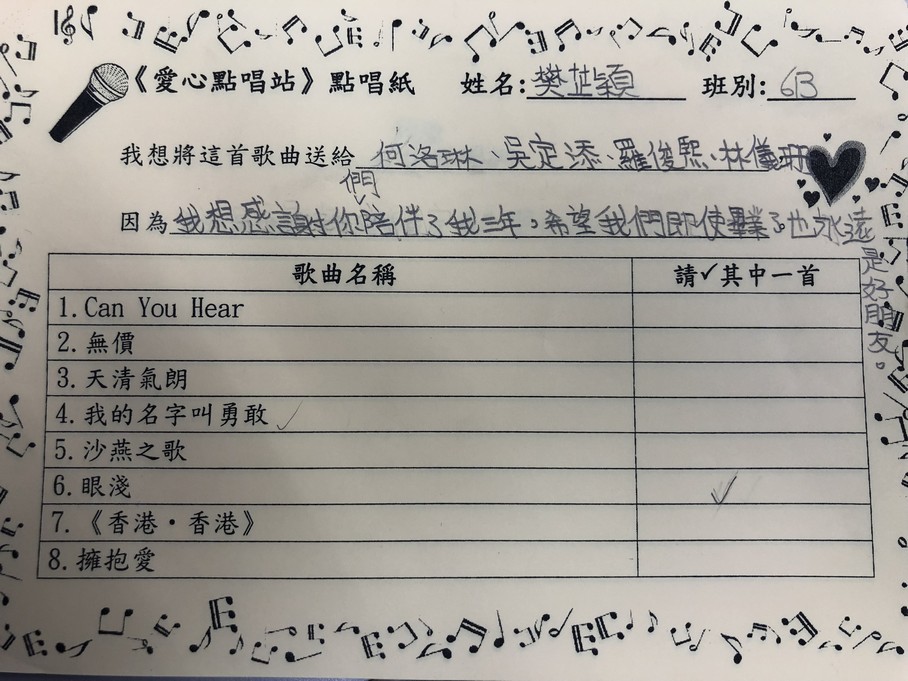 《愛心點唱站》點唱紙 姓名:樊芷穎 班別:6B
我想將這首歌曲送給 何洛琳、吳定添、羅俊熙、林儀珊
因為我想感謝你們陪伴了我三年,希望我們即使畢業了也永遠是好朋友。
歌曲名稱 請✓其中一首
1.Can You Hear
2.無價
3.天清氣朗
4.我的名字叫勇敢 ✓
5.沙燕之歌
6.眼淺 ✓
7.《香港·香港》
8.擁抱愛